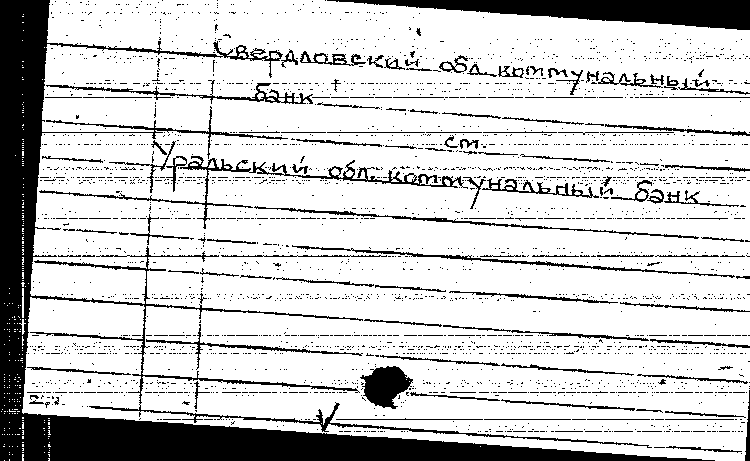 Свердловский обл. коммунальный
банк
ст.
Уральский обл. коммунальный банк